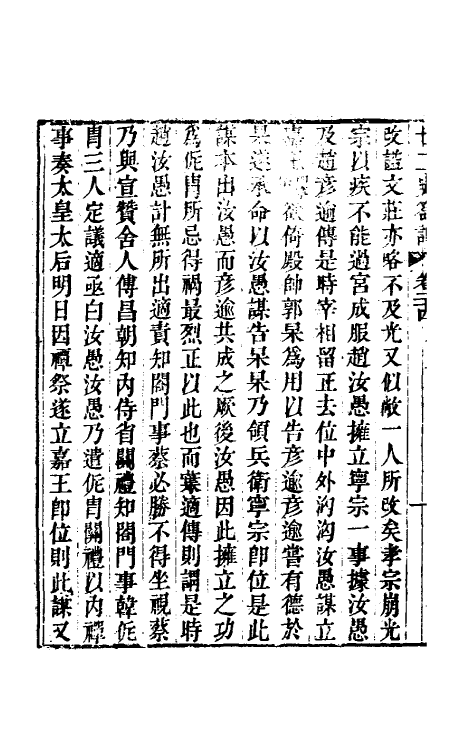 廿二史劄記 卷二十四
改諡文莊亦略不及光又似敵一人所改矣孝宗崩光
宗以疾不能過宮成服趙汝愚擁立寧宗一事據汝愚
及趙彥逾傳是時宰相留正去位中外洶洶汝愚謀立
嘉王欲倚殿帥郭杲為用以告彥逾彥逾嘗有德於
杲遂承命以汝愚謀告杲杲乃領兵衛寧宗即位是此
謀本出汝愚而彥逾共成之厥後汝愚因此擁立之功
為侂胄所忌得禍最烈正以此也而葉適傳則謂是時
趙汝愚計無所出適責知閤門事蔡必勝不得坐視蔡
乃與宣贊舍人傅昌朝知內侍省關禮知閤門事韓侂
胄三人定議適亟白汝愚汝愚乃遣侂胄關禮以內禪
事奏太皇太后明日因禫祭遂立嘉王即位則此謀又